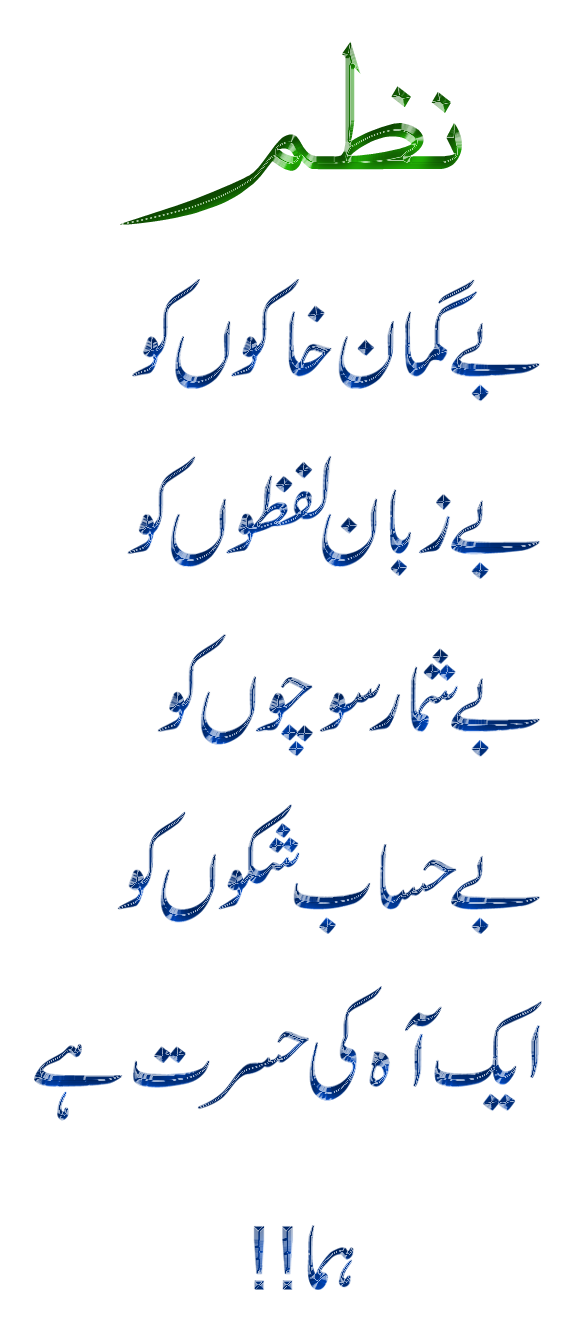 نظم
بے گمان خاکوں کو
بے زبان لفظوں کو
بے شمار سوچوں کو
بے حساب شکوں کو
ایک آہ کی حسرت ہے
ہما!!